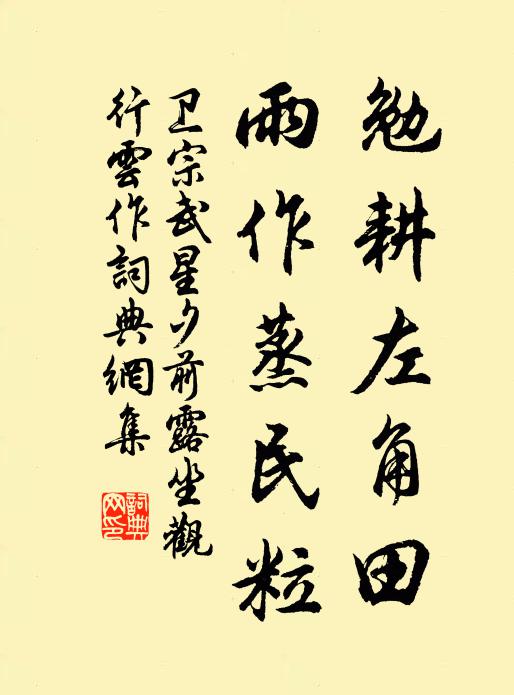 勉耕左角田
雨作蒸民粒
卫宗武星夕前露坐觀
行雲作詞典網集
詞典
网印